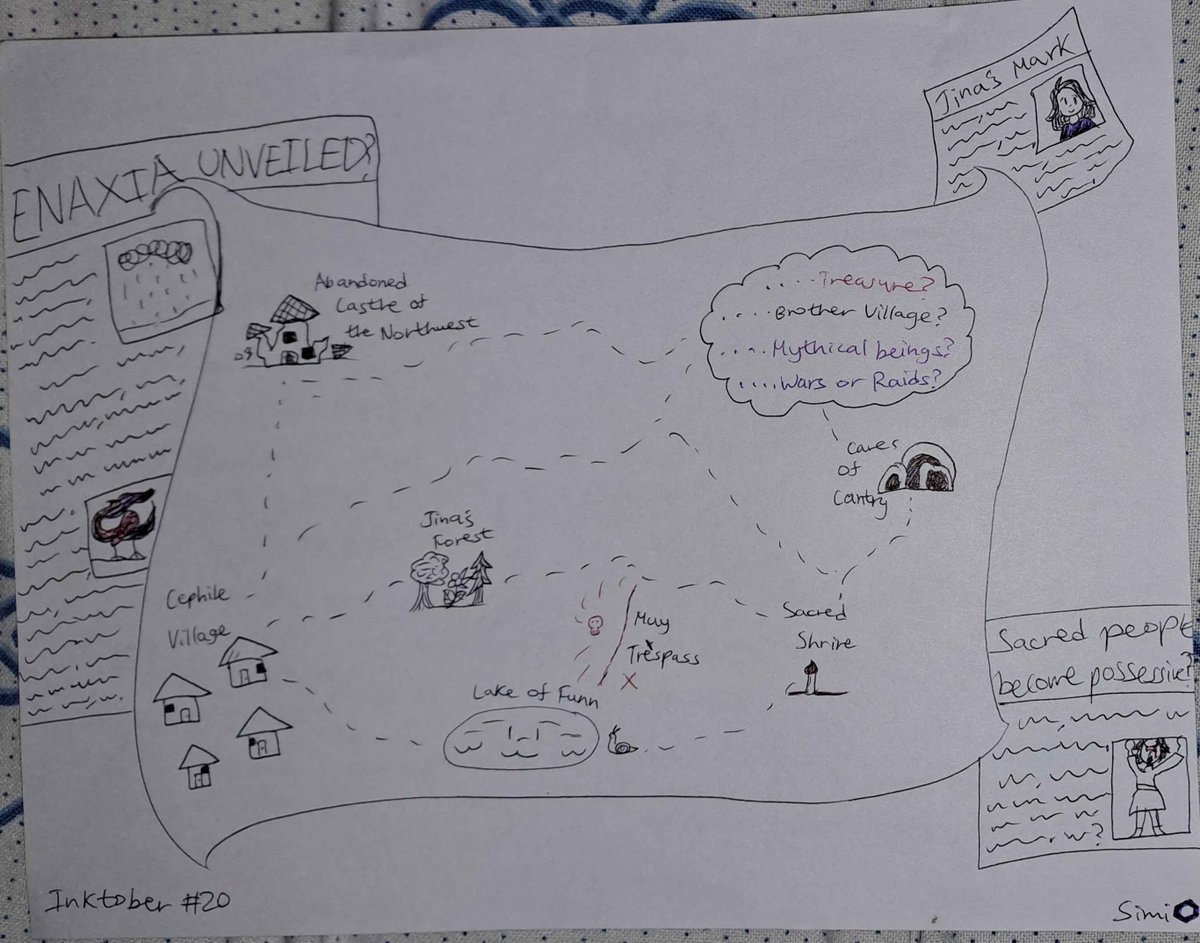 ENAXIA UNVEILED?
Jina's Mark
Abandoned
Castle of
the Northwest
.... Treasure?
.... Brother Village?
.... Mythical beings?
.... Wars or Raids?
Caves
of
Cantry
Jina's
Forest
Cephile
Village
May
Trespass
X
Sacred
Shrire
Lake of Funn
Sacred people
become possessive?
Inktober #20
Simi